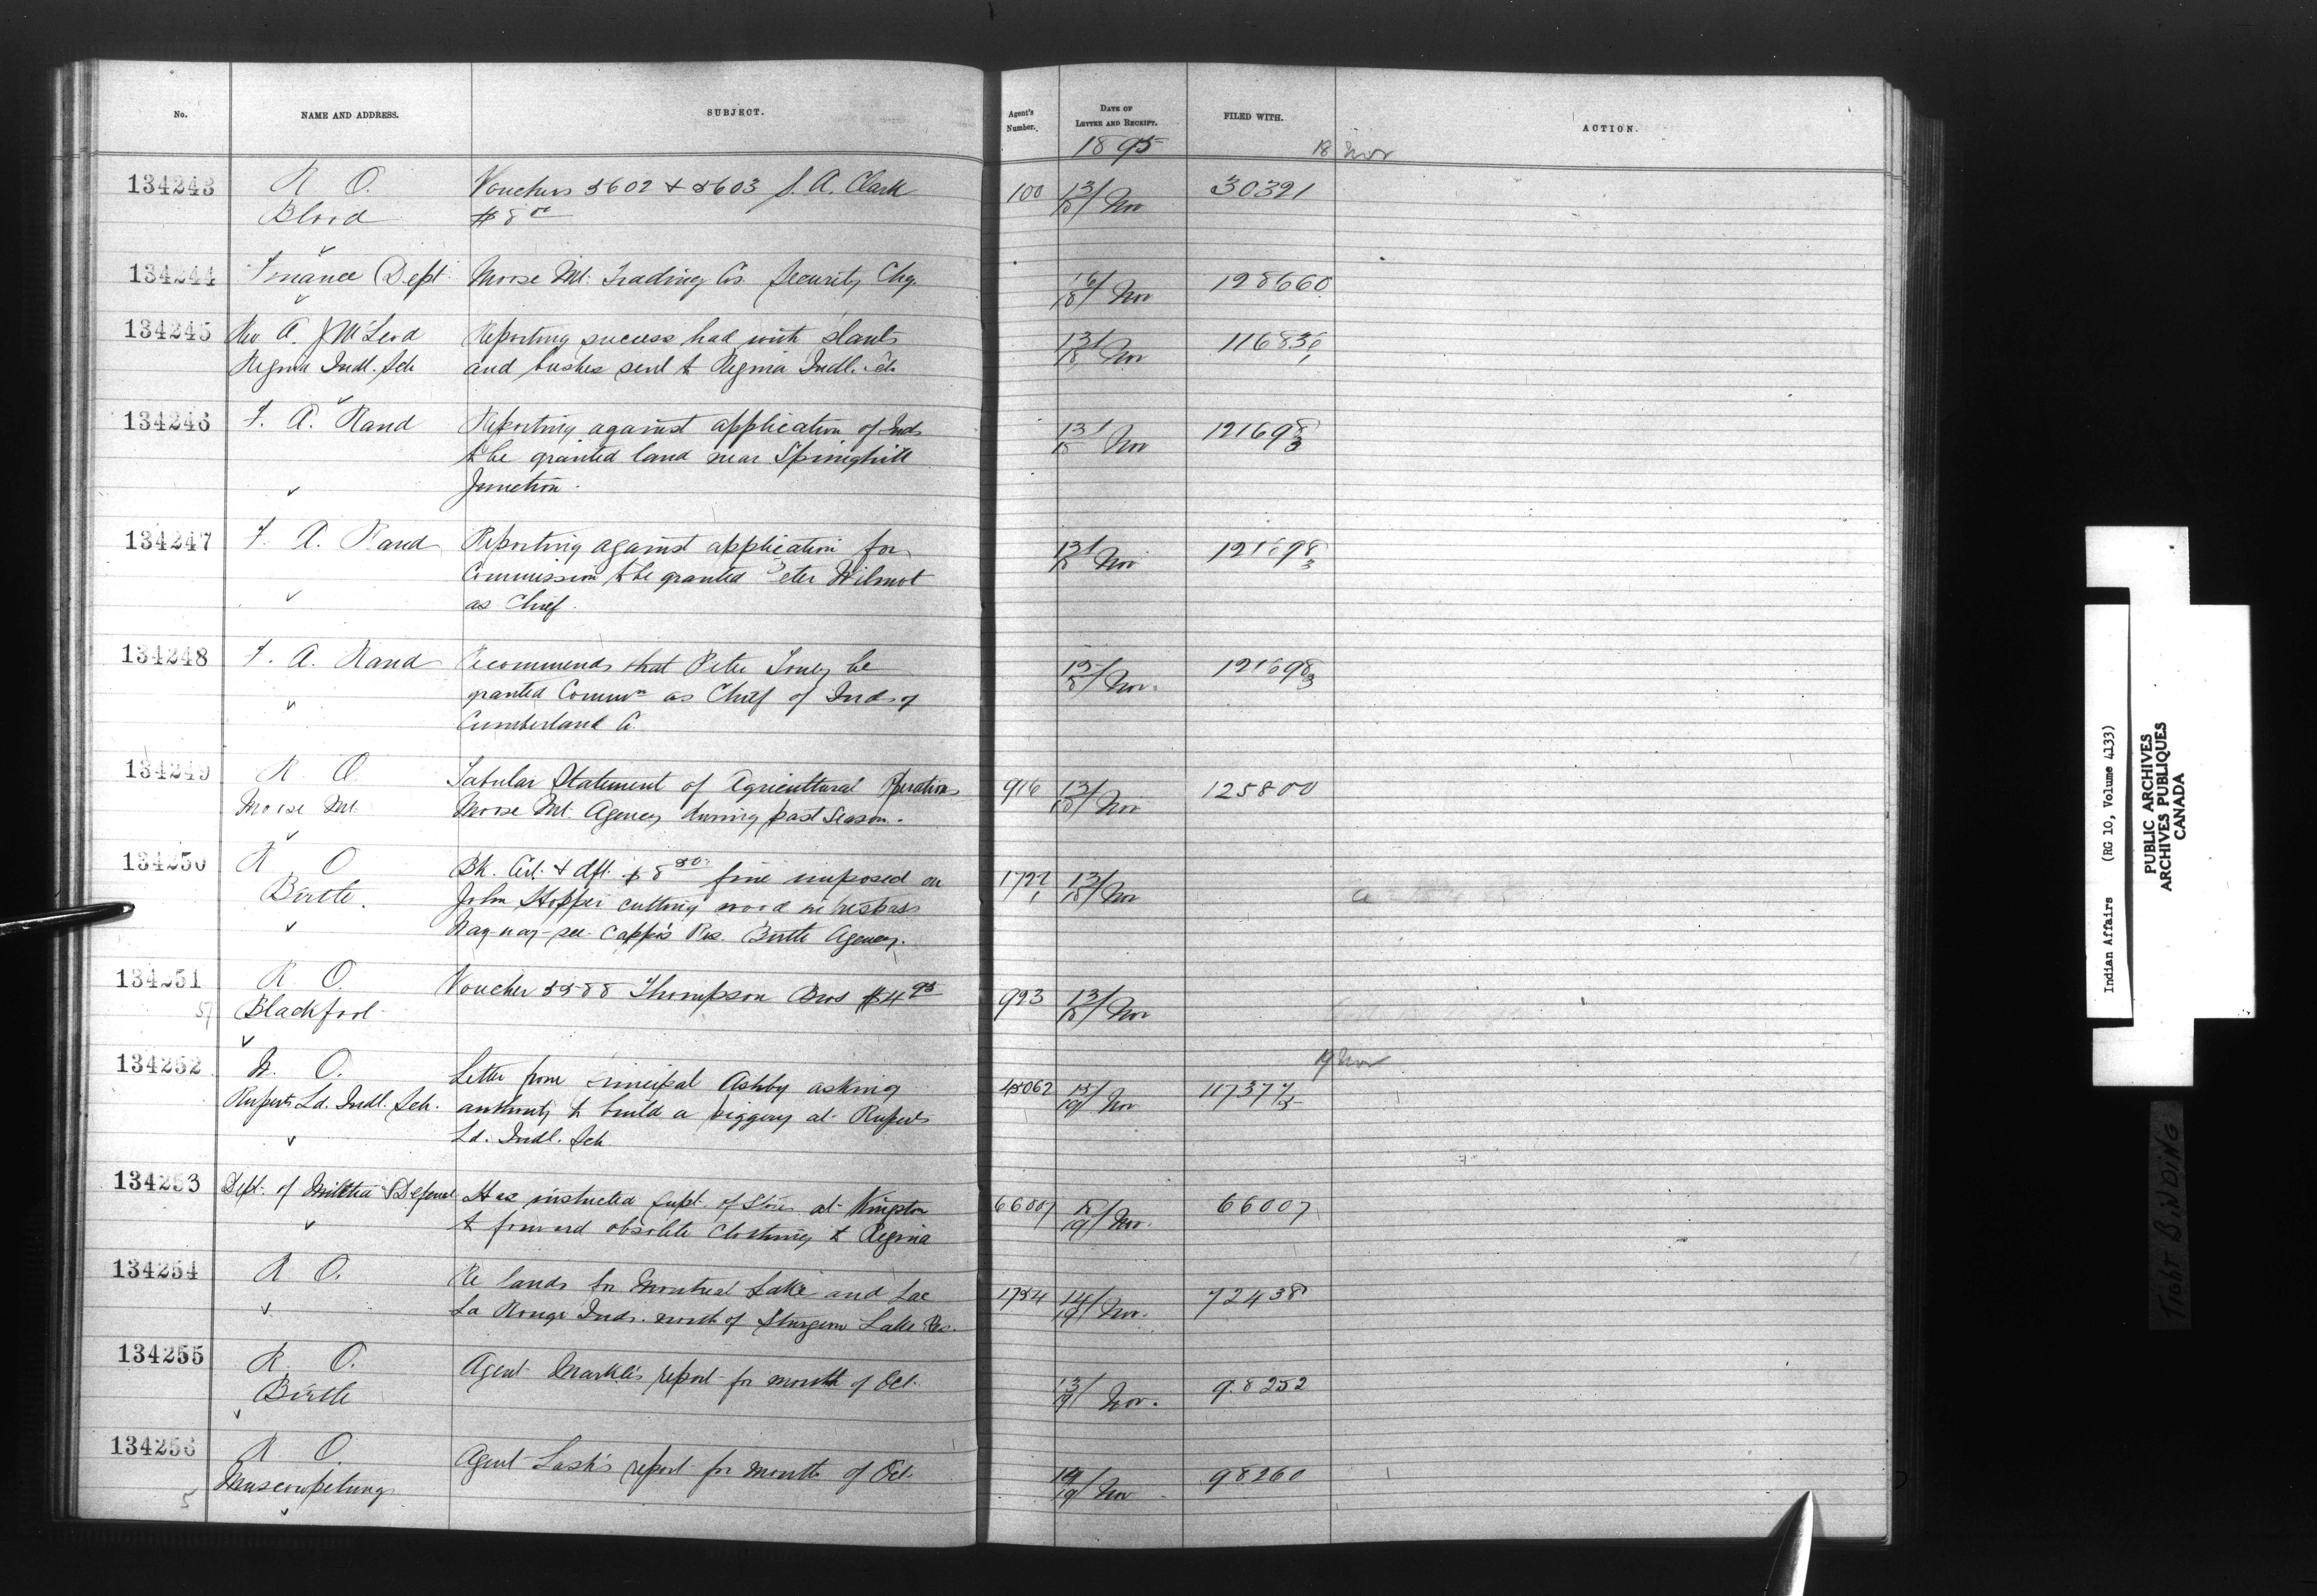 No. NAME AND ADDRESS. SUBJECT. Agent's Number. DATE OF LETTER AND RECEIPT. FILED WITH. ACTION.
1895 18 Nov
134243 R O. Vouchers 5602 & 5603 J. A. Clark 100 13/18 Nov 30391
Blood $8 00
134244 Finance Dept Moose Mt. Trading Co. Security Chq. 16/18 Nov 128660
134245 Rev A. J McLeod Reporting success had with plants 13/18 Nov 116836/1
Regina Indl. Sch and bushes sent to Regina Indl. Sch
134246 F. A. Rand Reporting against application of Inds 13/18 Nov 121698/3
to be granted land near Springhill
Junction.
134247 F. A. Rand Reporting against application for 13/18 Nov 121698/3
Commission to be granted Peter Wilmot
as Chief.
134248 F. A. Rand Recommends that Peter Toney be 15/18 Nov. 121698/3
granted Commn as Chief of Inds of
Cumberland Co.
134249 R O Tabular Statement of Agricultural Operations 916 13/18 Nov 125800
Moose Mt. Moose Mt. Agency during past Season.
134250 R O Bk. Cert. & dft. $8 50 fine imposed on 1722/1 13/18 Nov
Birtle. John Hopper cutting wood in trespass
Nay-way-see-cappo's Res. Birtle Agency.
134251 R O. Voucher 5588 Thompson Bros $4 95 923 13/18 Nov
Blackfoot
19 Nov
134252 W. O. Letter from Principal Ashby asking 45062 15/19 Nov 117377/5
Ruperts Ld. Indl. Sch. authority to build a piggery at Ruperts
Ld. Indl. Sch
134253 Dept. of Militia & Defence Has instructed Supt. of Stores at Kingston 66007 18/19 Nov. 66007
to forward obsolete clothing to Regina
134254 R O. Re lands for Montreal Lake and Lac 1754 14/19 Nov. 72438
La Ronge Inds. north of Sturgeon Lake Res.
134255 R. O. Agent Markle's report for month of Oct. 13/19 Nov. 98252
Birtle
134256 R O. Agent Lash's report for month of Oct. 14/19 Nov 98260
Muscowpetung
Indian Affairs (RG 10, Volume 4133)
PUBLIC ARCHIVES
ARCHIVES PUBLIQUES
CANADA
TIGHT BINDING